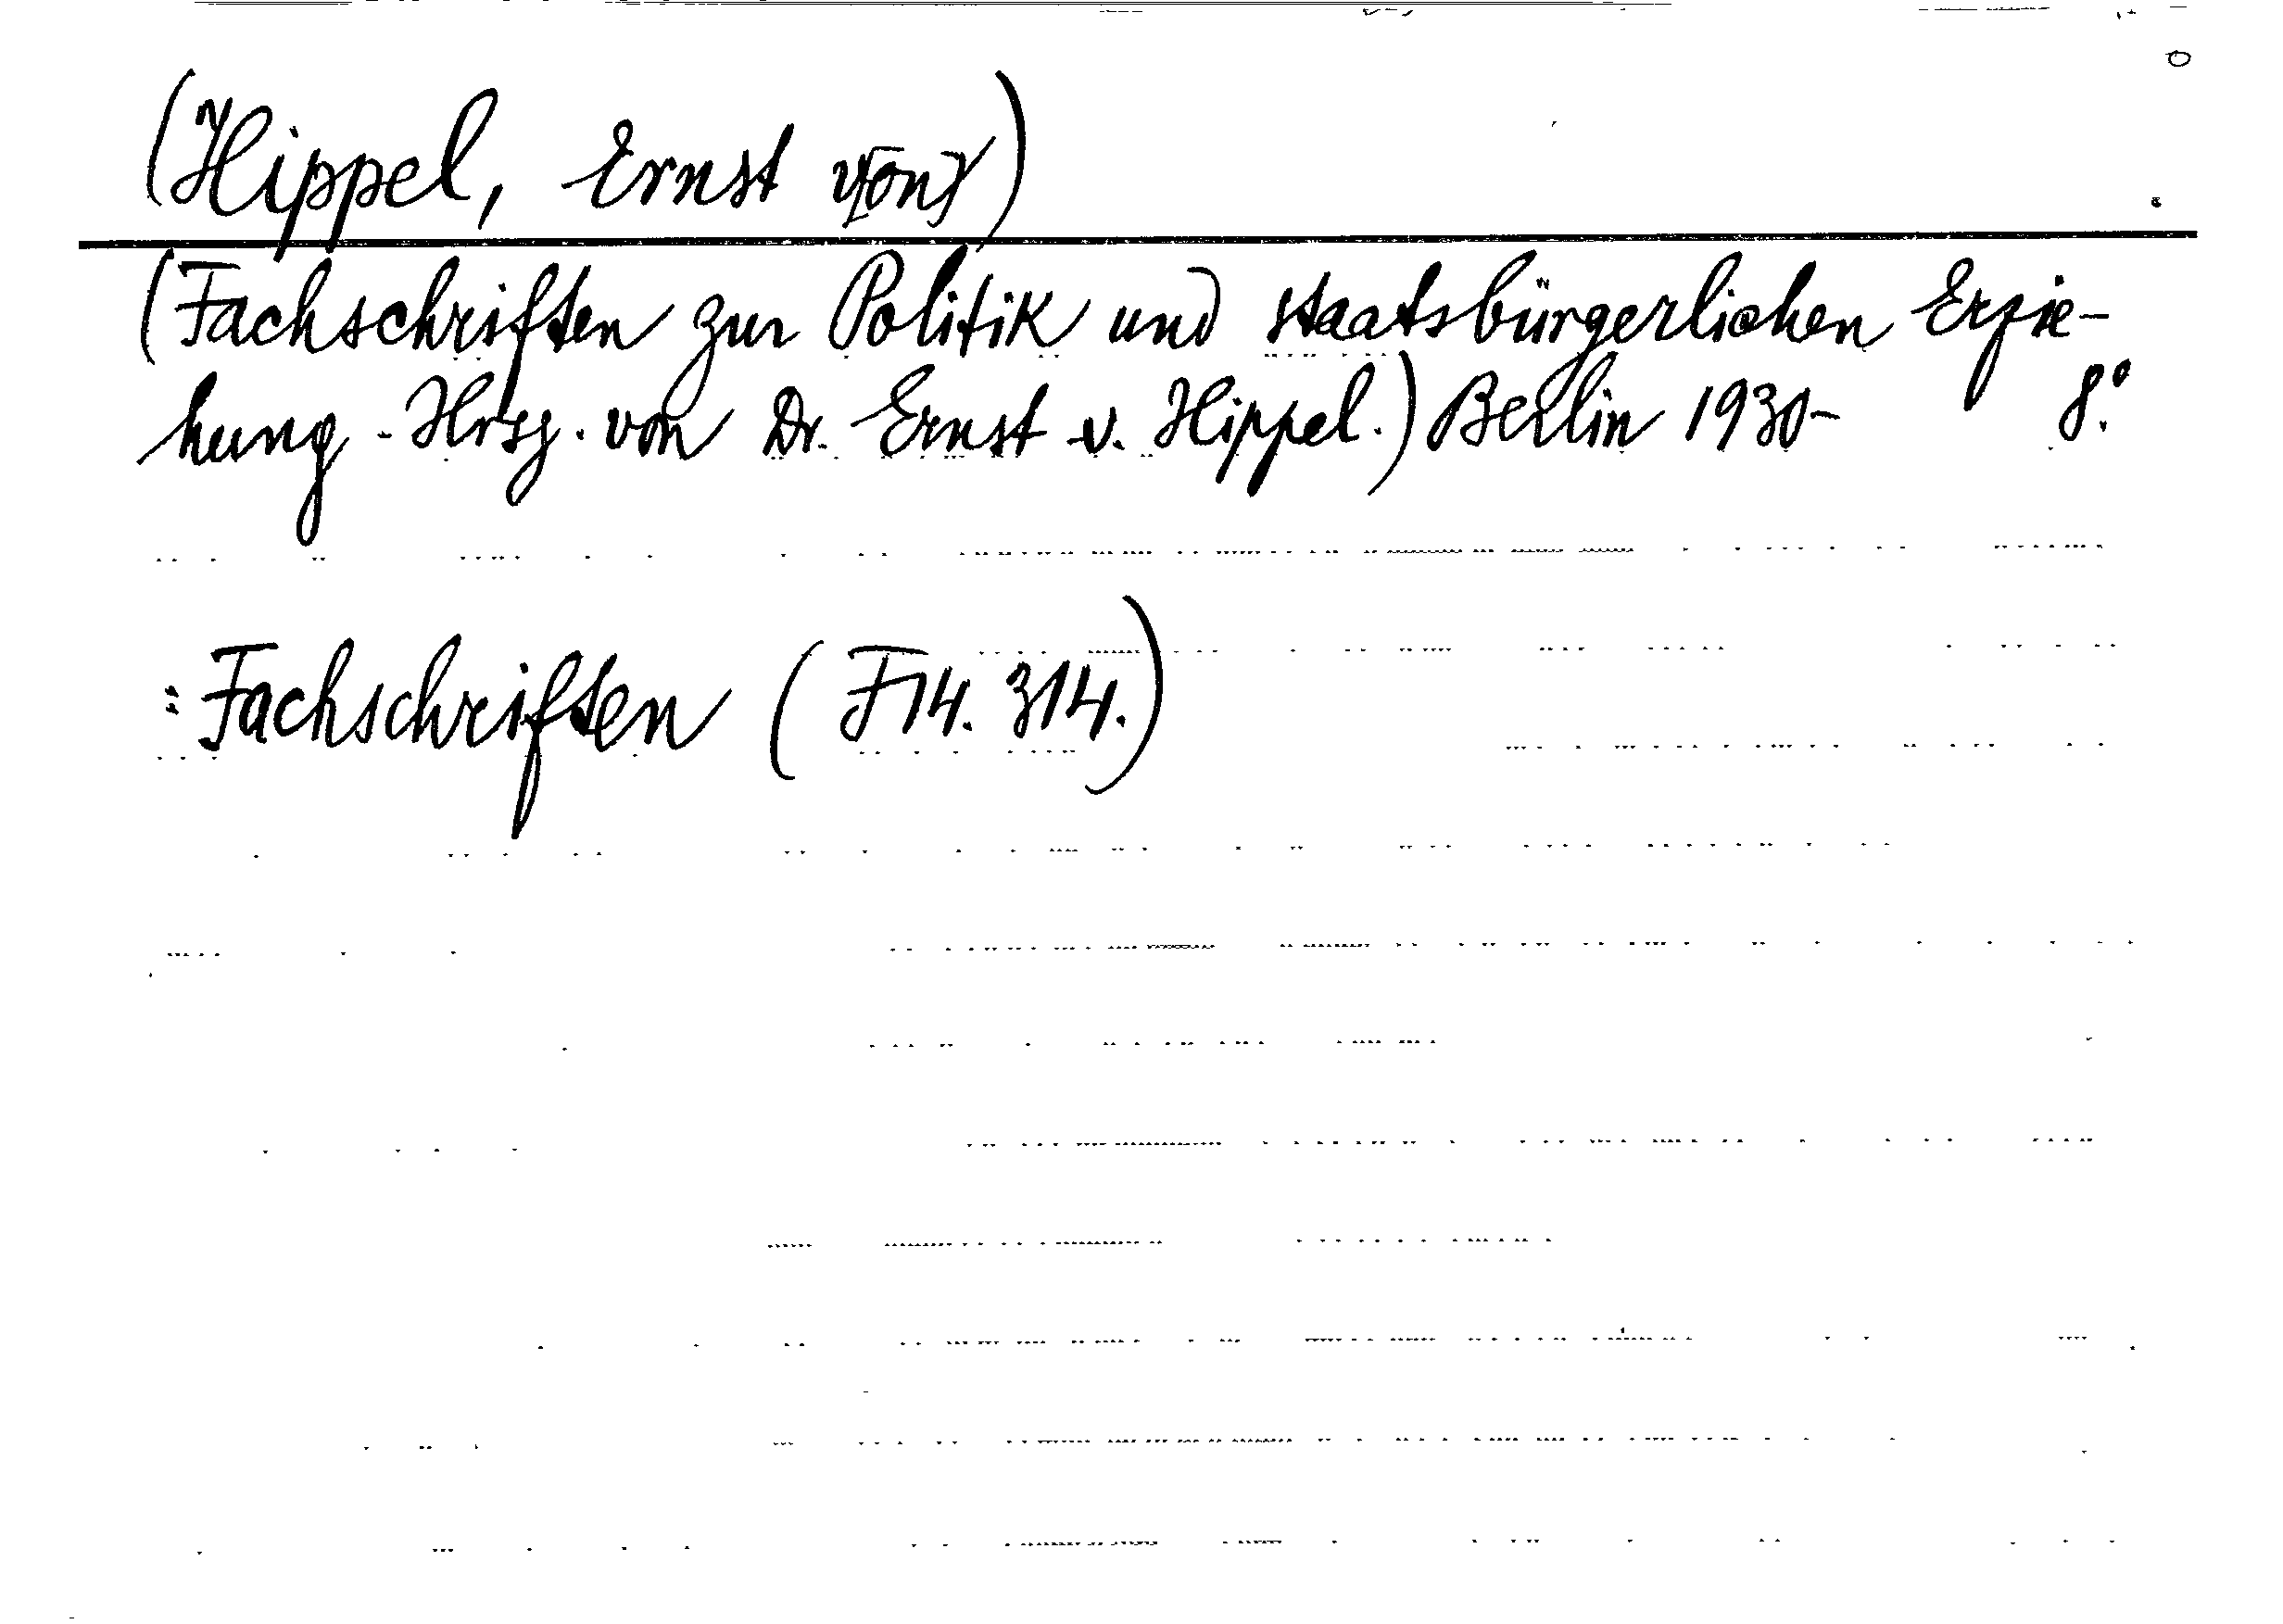 (Hippel, Ernst v[on])
(Fachschriften zur Politik und staatsbürgerlichen Erzie-
hung - Hrsg. von Dr. Ernst v. Hippel.) Berlin 1930- 8.°
: Fachschriften (F14. 314.)